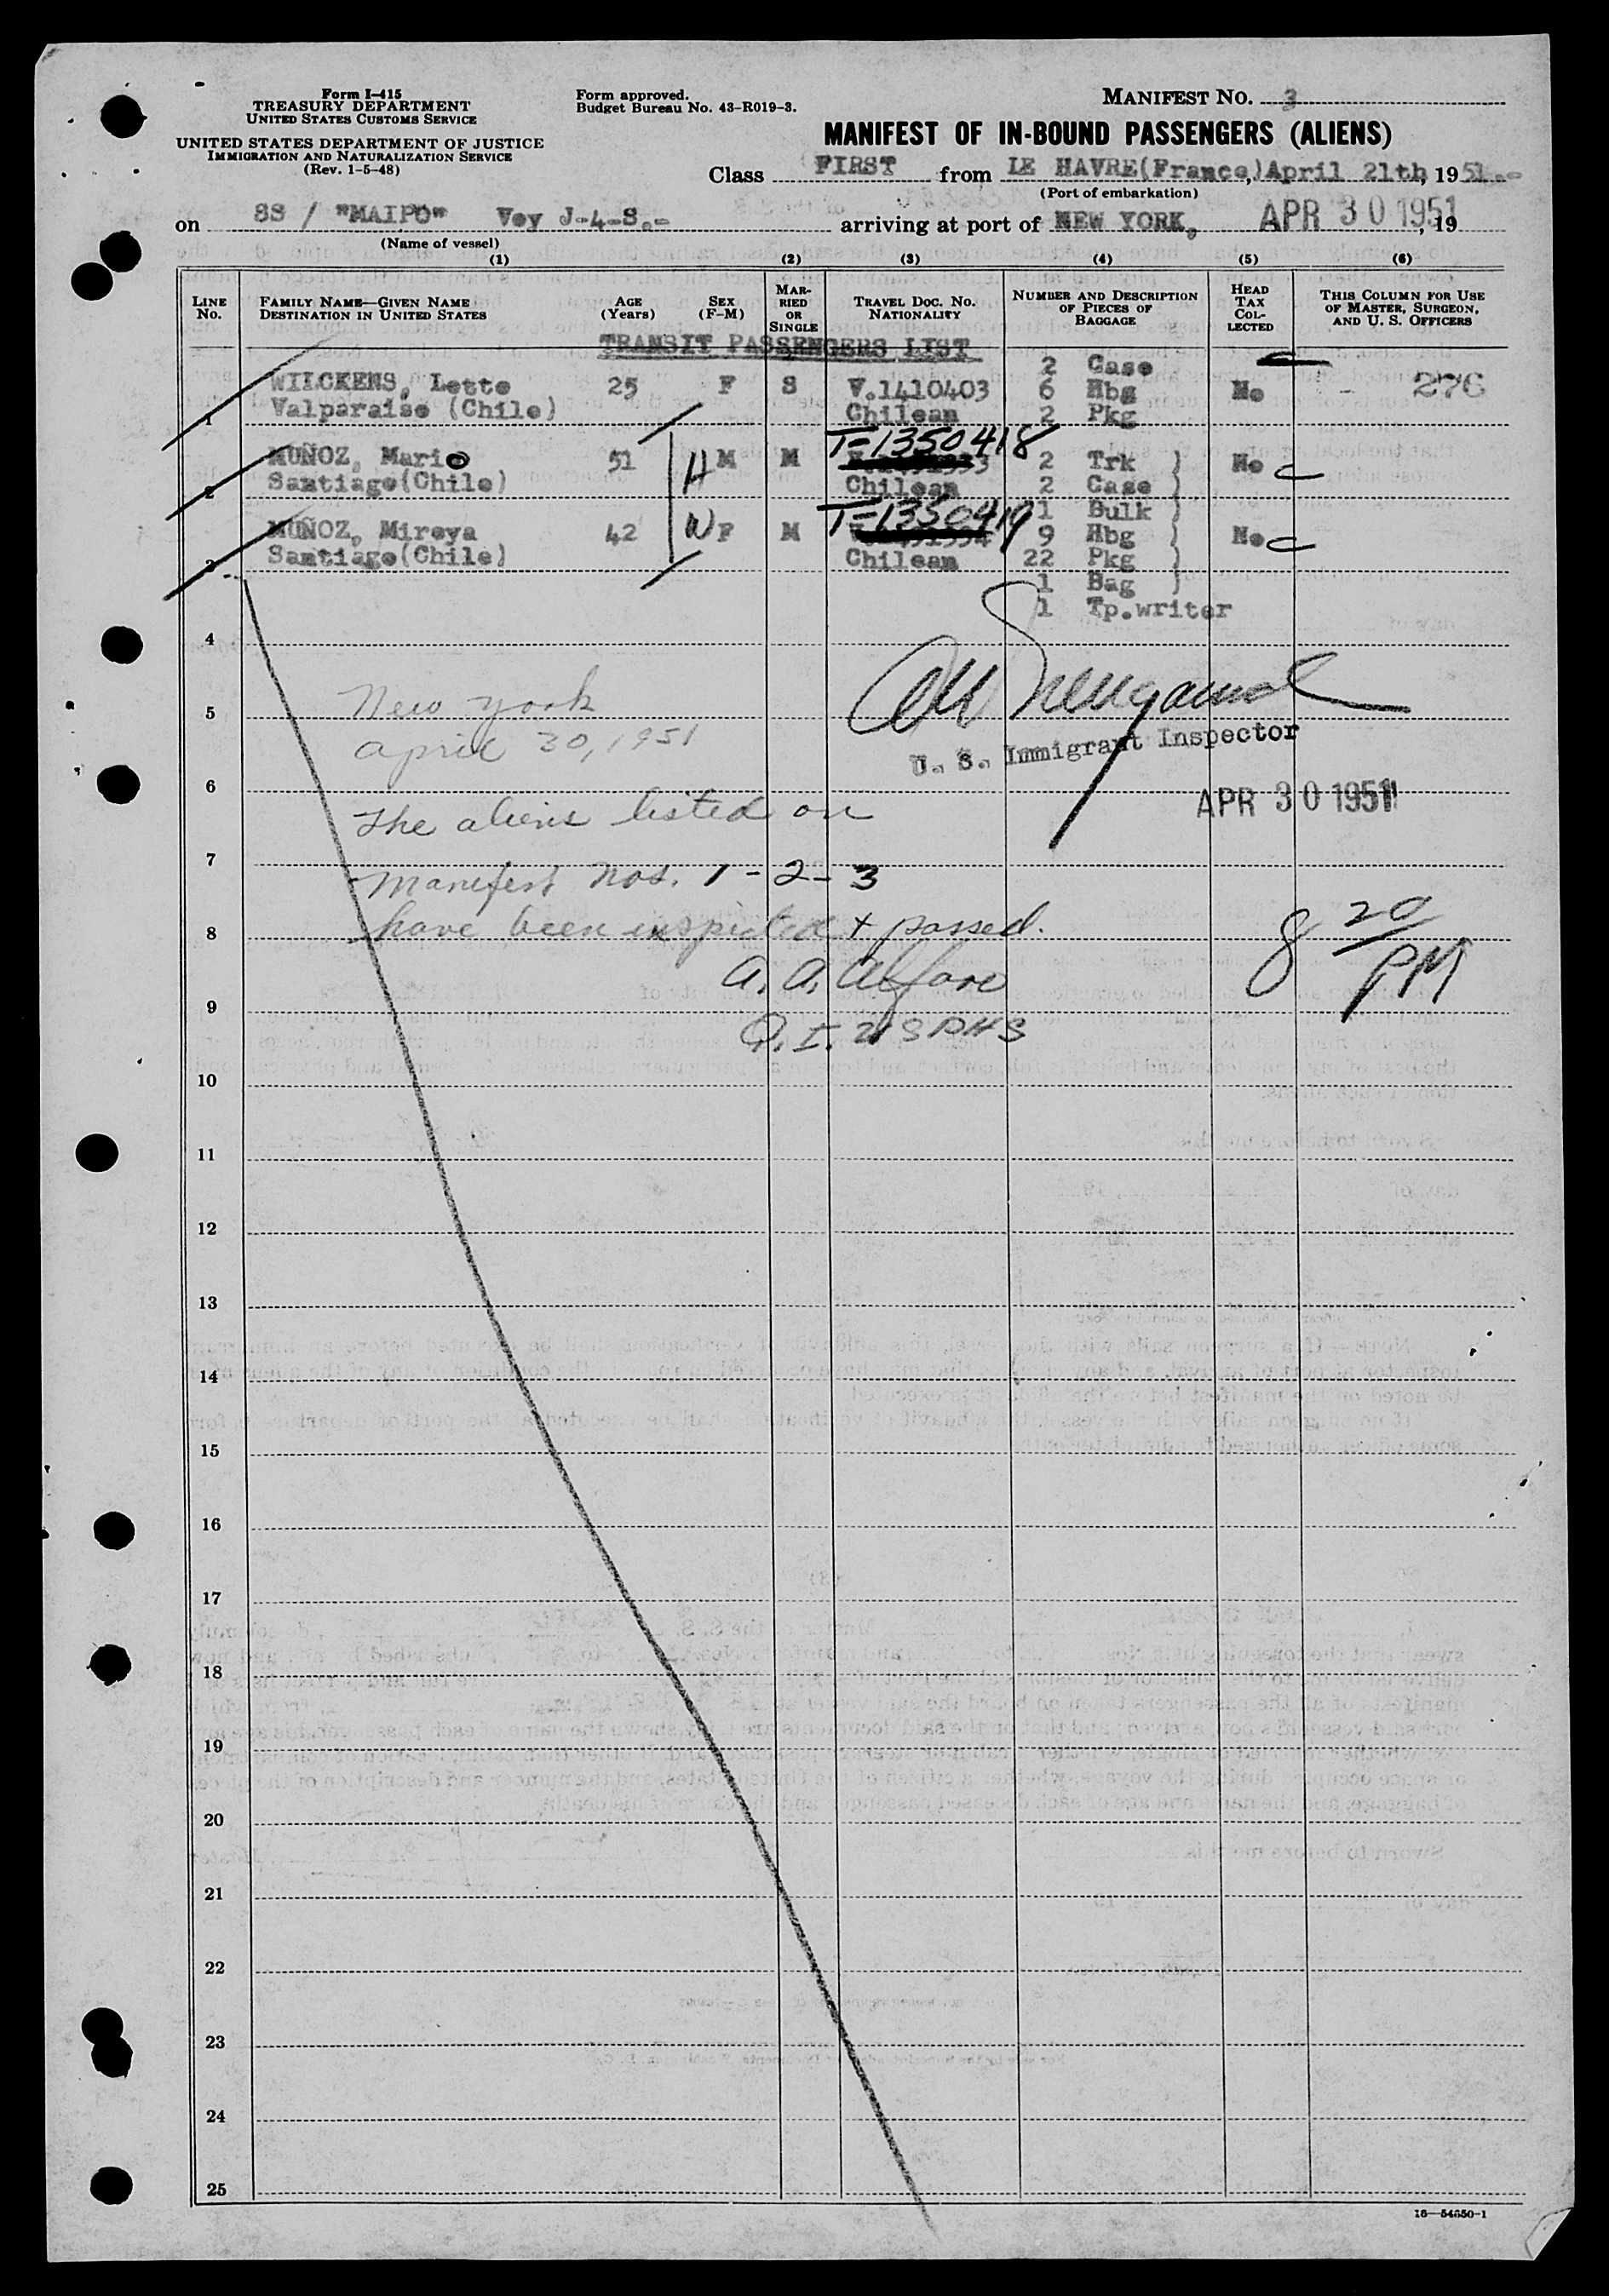 Form I-415
TREASURY DEPARTMENT
UNITED STATES CUSTOMS SERVICE
UNITED STATES DEPARTMENT OF JUSTICE
IMMIGRATION AND NATURALIZATION SERVICE
(Rev. 1-5-48)
Form approved.
Budget Bureau No. 43-R019-3.
MANIFEST NO. 3
MANIFEST OF IN-BOUND PASSENGERS (ALIENS)
Class FIRST from LE HAVRE(France,)April 21th, 1951.-
(Port of embarkation)
on SS / "MAIPO" Voy J-4-S.- arriving at port of NEW YORK, APR 30 1951, 19
(Name of vessel)
(1) (2) (3) (4) (5) (6)
LINE No.
FAMILY NAME—GIVEN NAME
DESTINATION IN UNITED STATES
AGE (Years)
SEX (F-M)
MAR-RIED OR SINGLE
TRAVEL DOC. NO.
NATIONALITY
NUMBER AND DESCRIPTION
OF PIECES OF
BAGGAGE
HEAD TAX COL-LECTED
THIS COLUMN FOR USE
OF MASTER, SURGEON,
AND U. S. OFFICERS
TRANSIT PASSENGERS LIST
2 Case
WILCKENS, Lotte 25 F S V.1410403 6 Hbg No - 276
1 Valparaiso (Chile) Chilean 2 Pkg
T-1350418
MUÑOZ, Mario 51 H M M 2 Trk ) No C
2 Santiago(Chile) Chilean 2 Case )
T-1350419 1 Bulk )
MUÑOZ, Mireya 42 W F M 9 Hbg ) No C
3 Santiago(Chile) Chilean 22 Pkg )
1 Bag )
1 Tp.writer
4
New York
5
april 30, 1951
U. S. Immigrant Inspector
6
APR 30 1951
The aliens listed on
7
Manifest Nos. 1-2-3
8 have been inspected + passed.
8 20 PM
A. A. Alfaro
9
Q. I. USPHS
10
11
12
13
14
15
16
17
18
19
20
21
22
23
24
25
16—54650-1